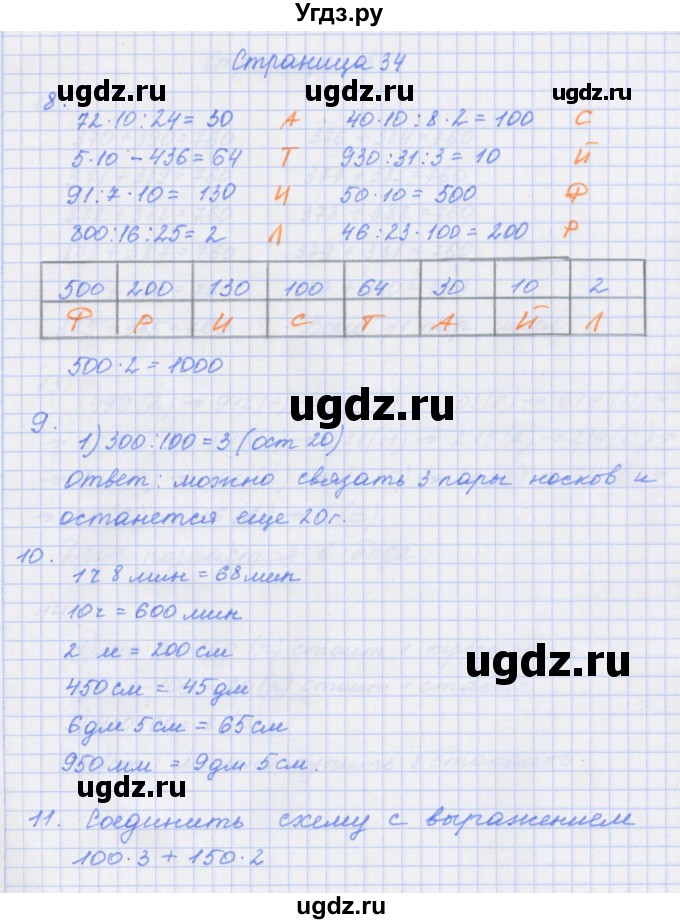 Угдз.ру
Страница 34
ugdz.ru ugdz.ru ugdz.ru
8.
72·10:24=30 А 40·10:8·2=100 С
5·10-436=64 Т 930:31:3=10 Й
91:7·10=130 И 50·10=500 Ф
800:16:25=2 Л 46:23·100=200 Р
500 200 130 100 64 30 10 2
Ф Р И С Т А Й Л
500·2=1000
ugdz.ru
9.
1) 300:100=3 (ост 20)
Ответ: можно связать 3 пары носков и
останется еще 20г.
10.
1ч 8 мин = 68мин
10ч = 600 мин
2 м = 200 см
ugdz.ru
450см = 45дм
6дм 5см = 65см
950мм = 9дм 5см.
ugdz.ru
11. Соединить схему с выражением
100·3+150·2
ugdz.ru